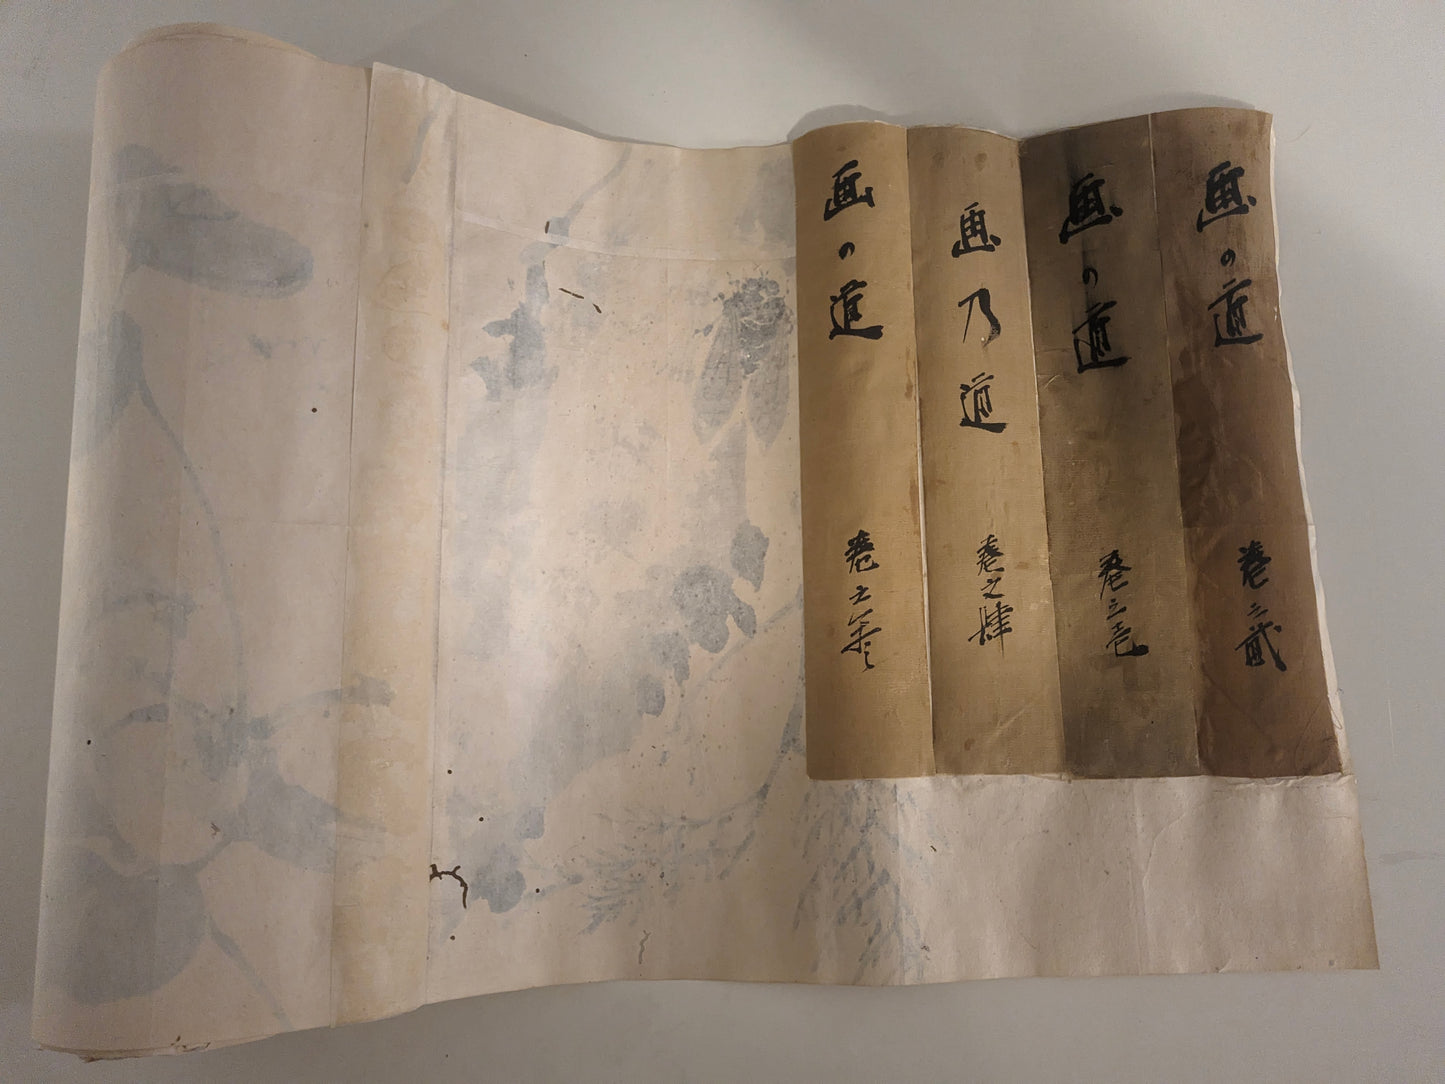 画の道
巻之貳
画の道
巻之壱
画乃道
巻之肆
画の道
巻之参